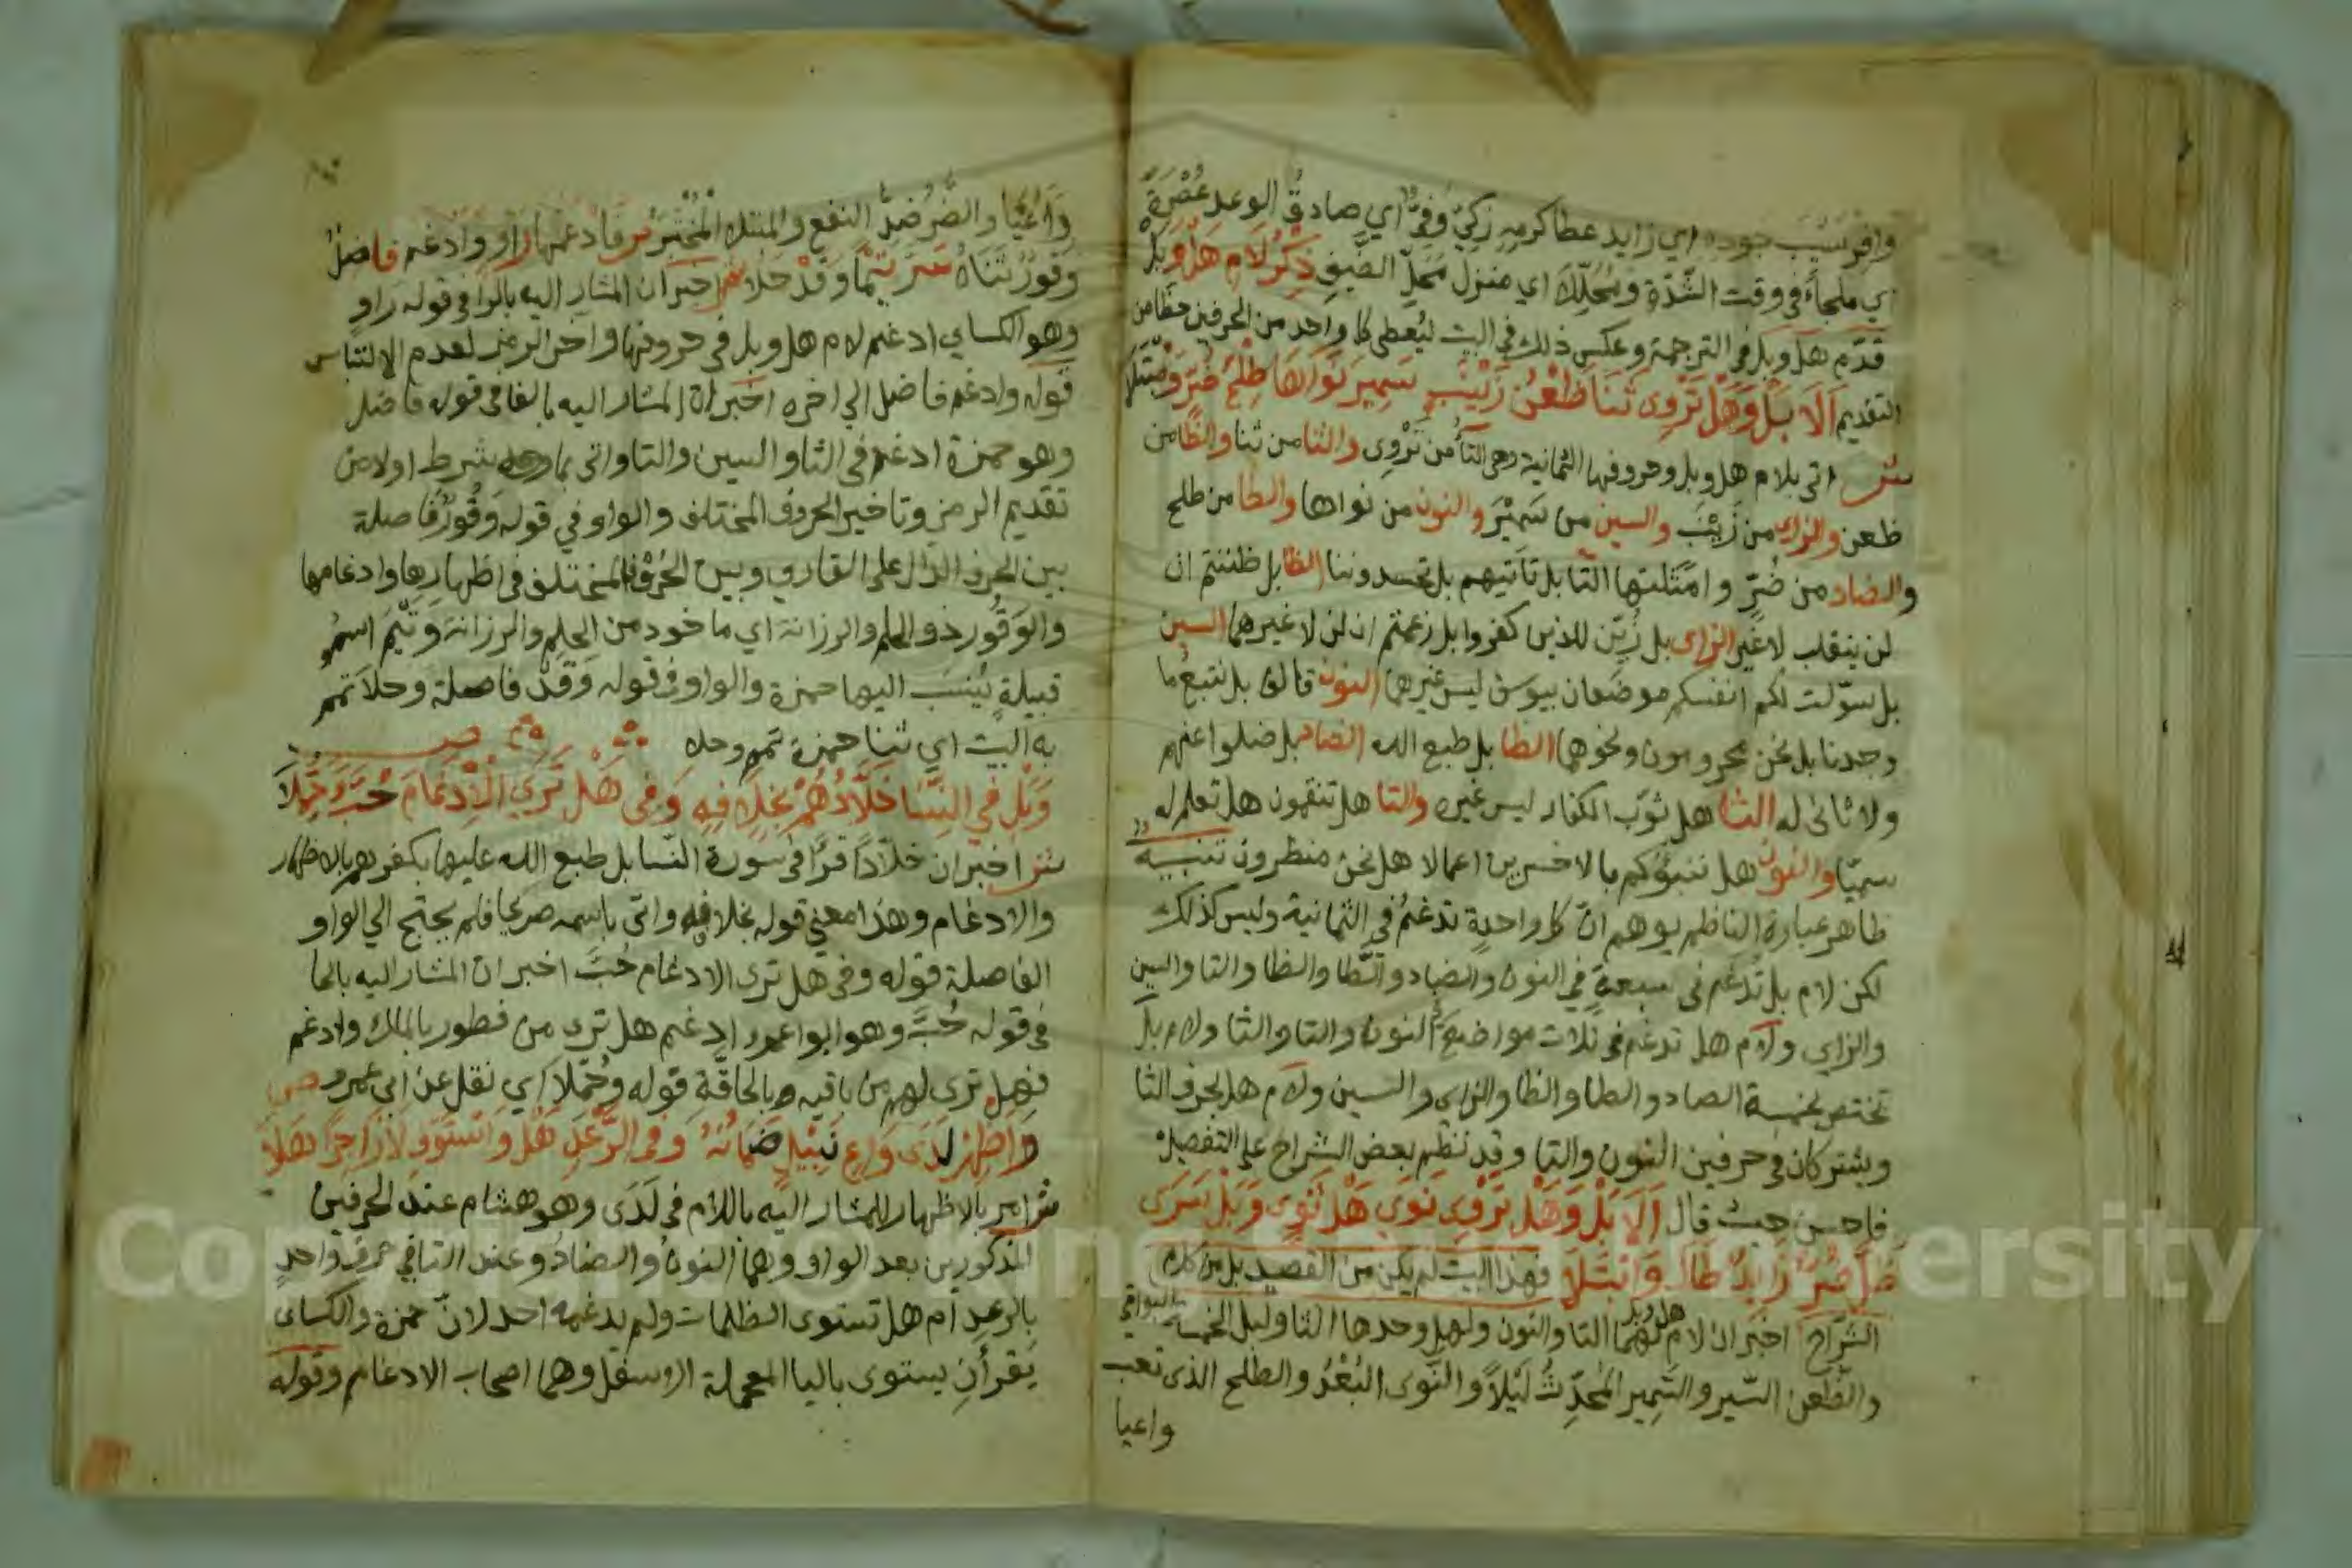 وافر سيب جوده اي زايد عطا كرمه زكيّ وفيّ اي صادق الوعد عصرة
اي ملجاء في وقت الشدّة ومحلّك اي منزل محلّ الضيف ذكر لام هل وبل
قدّم هل وبل في الترجمة وعكس ذلك في البيت ليعطى كل واحد من الحرفين حظا من
التقديم الا بل وهل تروى ثنا ظعن زينب سمير نواها طلح ضرّ ومبتلا
ش اتى بلام هل وبل وحروفها الثمانية وهى التا من تروى والثا من ثنا والظا من
ظعن والزاى من زينب والسين من سمير والنون من نواها والطا من طلح
والضاد من ضرّ وامثلتها التا بل تأتيهم بل تحسدوننا الظا بل ظننتم ان
لن ينقلب لا غير الزاى بل زيّن للذين كفروا بل زعمتم ان لن لا غيرهما السين
بل سوّلت لكم انفسكم موضعان بيوسف ليس غيرها النون قالوا بل نتبع ما
وجدنا بل نحن محرومون ونحوهما الطا بل طبع الله الضاد بل ضلوا عنهم
ولا ثانى له الثا هل ثوّب الكفار ليس غيره والتا هل تنقمون هل تعلم له
سميّا والنون هل ننبؤكم بالاخسرين اعمالا هل نحن منظرون تنبيه
ظاهر عبارة الناظم يوهم انّ كل واحدة تدغم في الثمانية وليس كذلك
لكن لام بل تدغم فى سبعة في النون والضاد والطا والظا والتا والسين
والزاي ولام هل تدغم فى ثلاث مواضع النون والتا والثا ولام بل
تختص بخمسة الضاد والطا والظا والزاى والسين ولام هل بحرف الثا
ويشتركان فى حرفين النون والتا وقد نظم بعض الشراح على التفصيل
فاحسن حيث قال الا بل وهل تروى نوى هل ثوى وبل سرى
ظل ضر زايد طال وابتلا فهذا البيت لم يكن من القصيد بل من كلام
الشرّاح اخبر ان لام هل وبل لهما التا والنون ولهل وحدها الثا ولبل الخمسة البواقي
والظعن السير والسمير المحدّث ليلا والنّوى البعد والطلح الذى تعب
واعيا
واعيا والضر ضدّ النفع والمبتلا المختبر ص فادغمها راو وادغم فاضل
وقور ثناه سرّ تيما وقد حلا ش اخبر ان المشار اليه بالرا في قوله راو
وهو الكساي ادغم لام هل وبل فى حروفها واخر الرمز لعدم الالتباس
قوله وادغم فاضل الي اخره اخبر ان المشار اليه بالفا فى قوله فاضل
وهو حمزة ادغم فى الثا والسين والتا واتى بما وعد بشرط اولا من
تقديم الرمز وتاخير الحروف المختلف والواو في قوله وقور فاصلة
بين الحرف الدال على القارى وبين الحروف المختلف فى اظهارها وادغامها
والوقور ذو الحلم والرزانة اي ماخوذ من الحلم والرزانة وتيم اسم
قبيلة ينسب اليها حمزة والواو فى قوله وقد فاصلة وحلا تمم
به البيت اي ثنا حمزة تمم وحلا ص
وبل في النسا خلادهم بخلافه وفى هل ترى الادغام حبّ وحمّلا
ش اخبر ان خلادا قرا فى سورة النسا بل طبع الله عليها بكفرهم بالاظهار
والادغام وهذا معني قوله بخلافه واتى باسمه صريحا فلم يحتج الي الواو
الفاصلة قوله وفى هل ترى الادغام حبّ اخبر ان المشار اليه بالحا
فى قوله حبّ وهو ابوا عمرو ادغم هل ترى من فطور بالملك وادغم
فهل ترى لهم من باقيه بالحاقّة قوله وحمّلا اي نقل عن ابي عمرو ص
واظهر لدى واع نبيل ضمانه وفى الرعد هل واستوف لا زاجرا هلا
ش امر بالاظهار للمشار اليه باللام فى لدى وهو هشام عند الحرفين
المذكورين بعد الواو وهما النون والضاد وعند التا في حرف واحد
بالرعد ام هل تستوى الظلمات ولم يدغمه احد لانّ حمزة والكساى
يقرأن يستوى باليا المعجمة الاسفل وهما اصحاب الادغام وقوله
Copyright © King Saud University